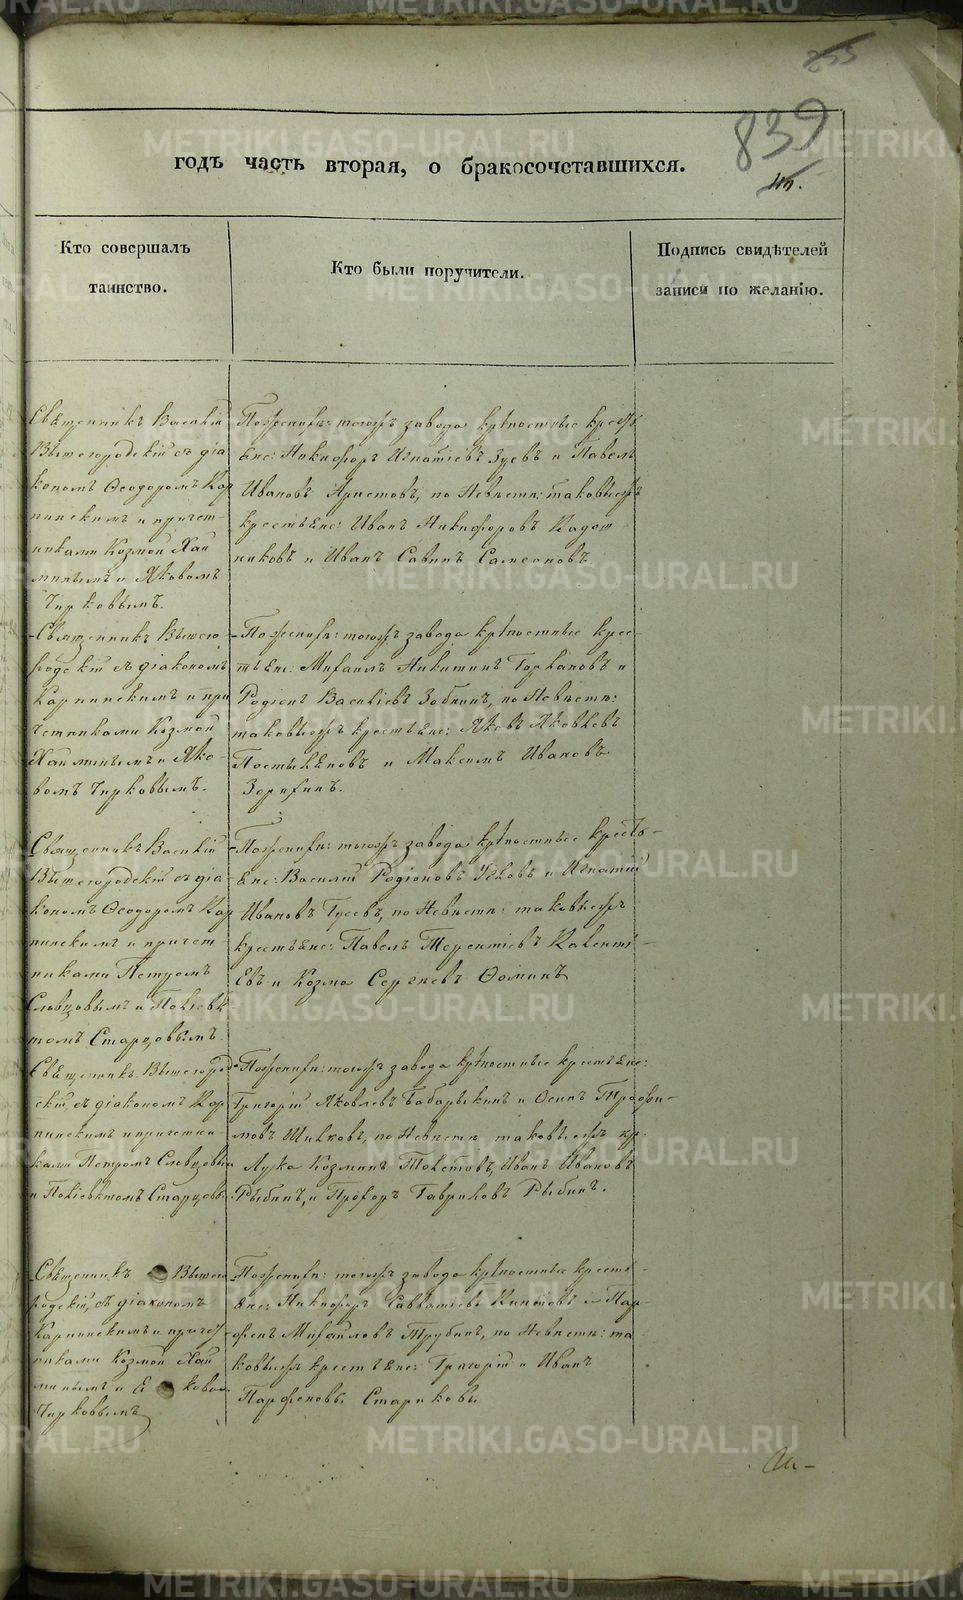 839
годъ часть вторая, о бракосочетавшихся.
Кто совершалъ
таинство.
Кто были поручители.
Подпись свидѣтелей
записи по желанію.
Священникъ Василій
Вышегородскій съ діа
кономъ Ѳеодоромъ Кар
пинскимъ и причет-
никами Козмой Хай
минымъ и Яковомъ
Чирковымъ.
По женихѣ: тогожъ завода крѣпостные кресть
яне: Никифоръ Игнатіевъ Зуевъ и Павелъ
Ивановъ Аристовъ, по невѣстѣ: таковыежъ
крестьяне: Иванъ Никифоровъ Кадот
никовъ и Иванъ Савинъ Самсоновъ.
Священникъ Вышего
родскій съ діакономъ
Карпинскимъ и при
четниками Козмой
Хайминымъ и Яко-
вомъ Чирковымъ.
По женихѣ: тогожъ завода крѣпостные крес-
тьяне: Михаилъ Никитинъ Горбановъ и
Родіонъ Васильевъ Зобнинъ, по невѣстѣ:
таковыежъ крестьяне: Яковъ Яковлевъ
Постыляковъ и Максимъ Ивановъ
Зорихинъ.
Священникъ Василій
Вышегородскій съ діа
кономъ Ѳеодоромъ Кар
пинскимъ и причет
никами Петромъ
Словцовымъ и Поліевк
томъ Старцовымъ.
По женихѣ: тогожъ завода крѣпостные кресть-
яне: Василій Родіоновъ Усковъ и Игнатій
Ивановъ Гусевъ, по невѣстѣ: таковыежъ
крестьяне: Павелъ Терентіевъ Каленті-
евъ и Козма Сергѣевъ Ѳоминъ
Священникъ Вышегород
скій съ діакономъ Кар
пинскимъ и причетни-
ками Петромъ Словцовым
и Поліевктомъ Старцовы
По женихѣ: тогожъ завода крѣпостные крестьяне:
Григорій Яковлевъ Бабарыкинъ и Осипъ Трофи-
мовъ Шиловъ, по невѣстѣ таковыежъ кр:
Лука Козминъ Толстовъ, Иванъ Ивановъ
Рыбинъ, и Прохоръ Гавриловъ Рыбинъ.
Священникъ Вышего
родскій, съ діакономъ
Карпинскимъ и причет
никами Козмой Хай
минымъ и Я ково
Чирковымъ
По женихѣ: тогожъ завода крѣпостные кресть-
яне: Никифоръ Савватіевъ и Пар-
фенъ Михайловъ Трубинъ, по невѣстѣ: та
ковыежъ крестьяне: Григорій и Иванъ
Парфеновы Стариковы
METRIKI.GASO-URAL.RU